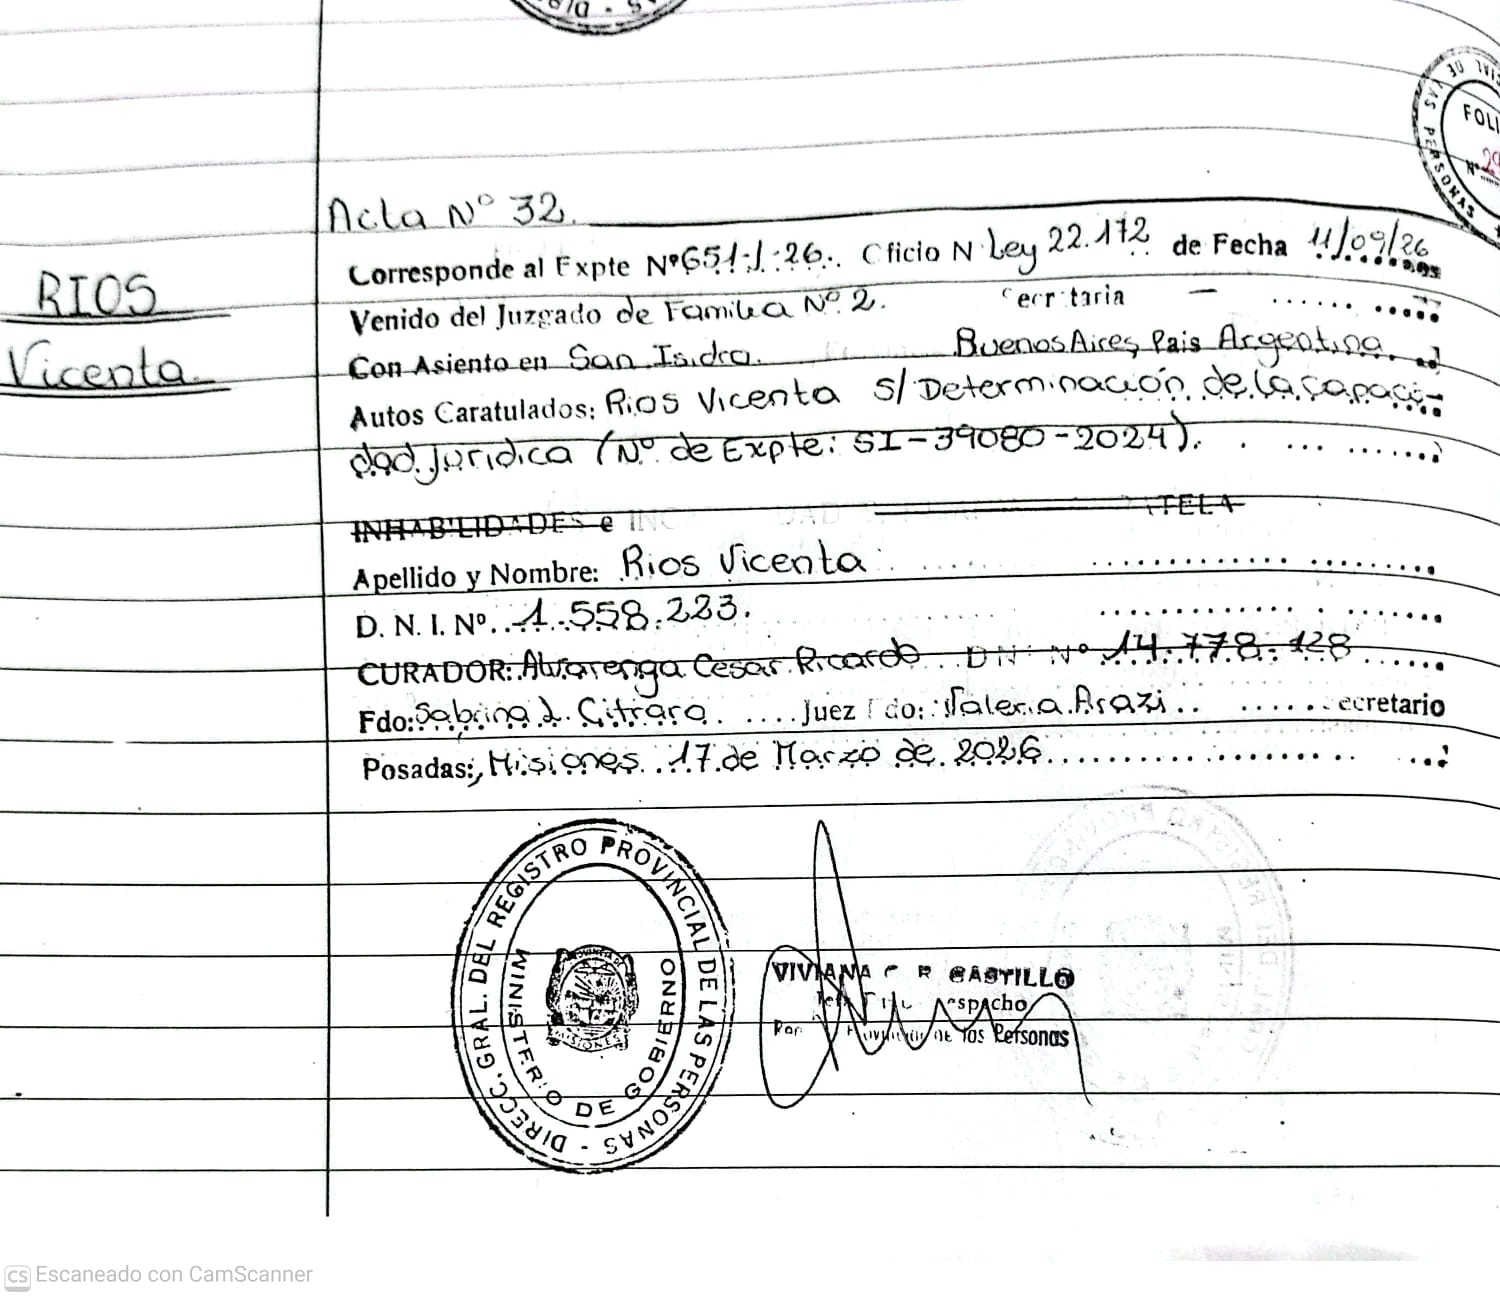 FOLI
Nº 29
Acta Nº 32.
RIOS
Vicenta
Corresponde al Expte Nº 651·J·26. Oficio N Ley 22.172 de Fecha 11/09/26
Venido del Juzgado de Familia Nº 2. Secretaria —
Con Asiento en San Isidro. Buenos Aires, Pais Argentina.
Autos Caratulados: Rios Vicenta S/ Determinación de la capaci-
dad Juridica (Nº de Expte: SI-39080-2024).
INHABILIDADES e
Apellido y Nombre: Rios Vicenta
D. N. I. Nº 1.558.223.
CURADOR: Alvarenga Cesar Ricardo DNI Nº 14.778.128
Fdo: Sabrina L. Citrara. Juez Fdo: Valeria Arazi Secretario
Posadas:, Misiones 17 de Marzo de 2026
DIRECC. GRAL. DEL REGISTRO PROVINCIAL DE LAS PERSONAS -
MINISTERIO DE GOBIERNO
MISIONES
VIVIANA CASTILLO
Despacho
de las Personas
CS Escaneado con CamScanner